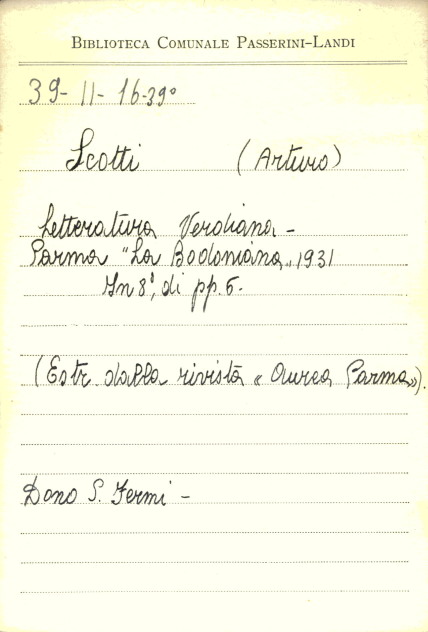 BIBLIOTECA COMUNALE PASSERINI-LANDI
39-II-16-39°
Scotti (Arturo)
Letteratura Verdiana -
Parma "La Bodoniana" 1931
In 8°, di pp. 6.
(Estr. dalla rivista « Aurea Parma»).
Dono S. Fermi -